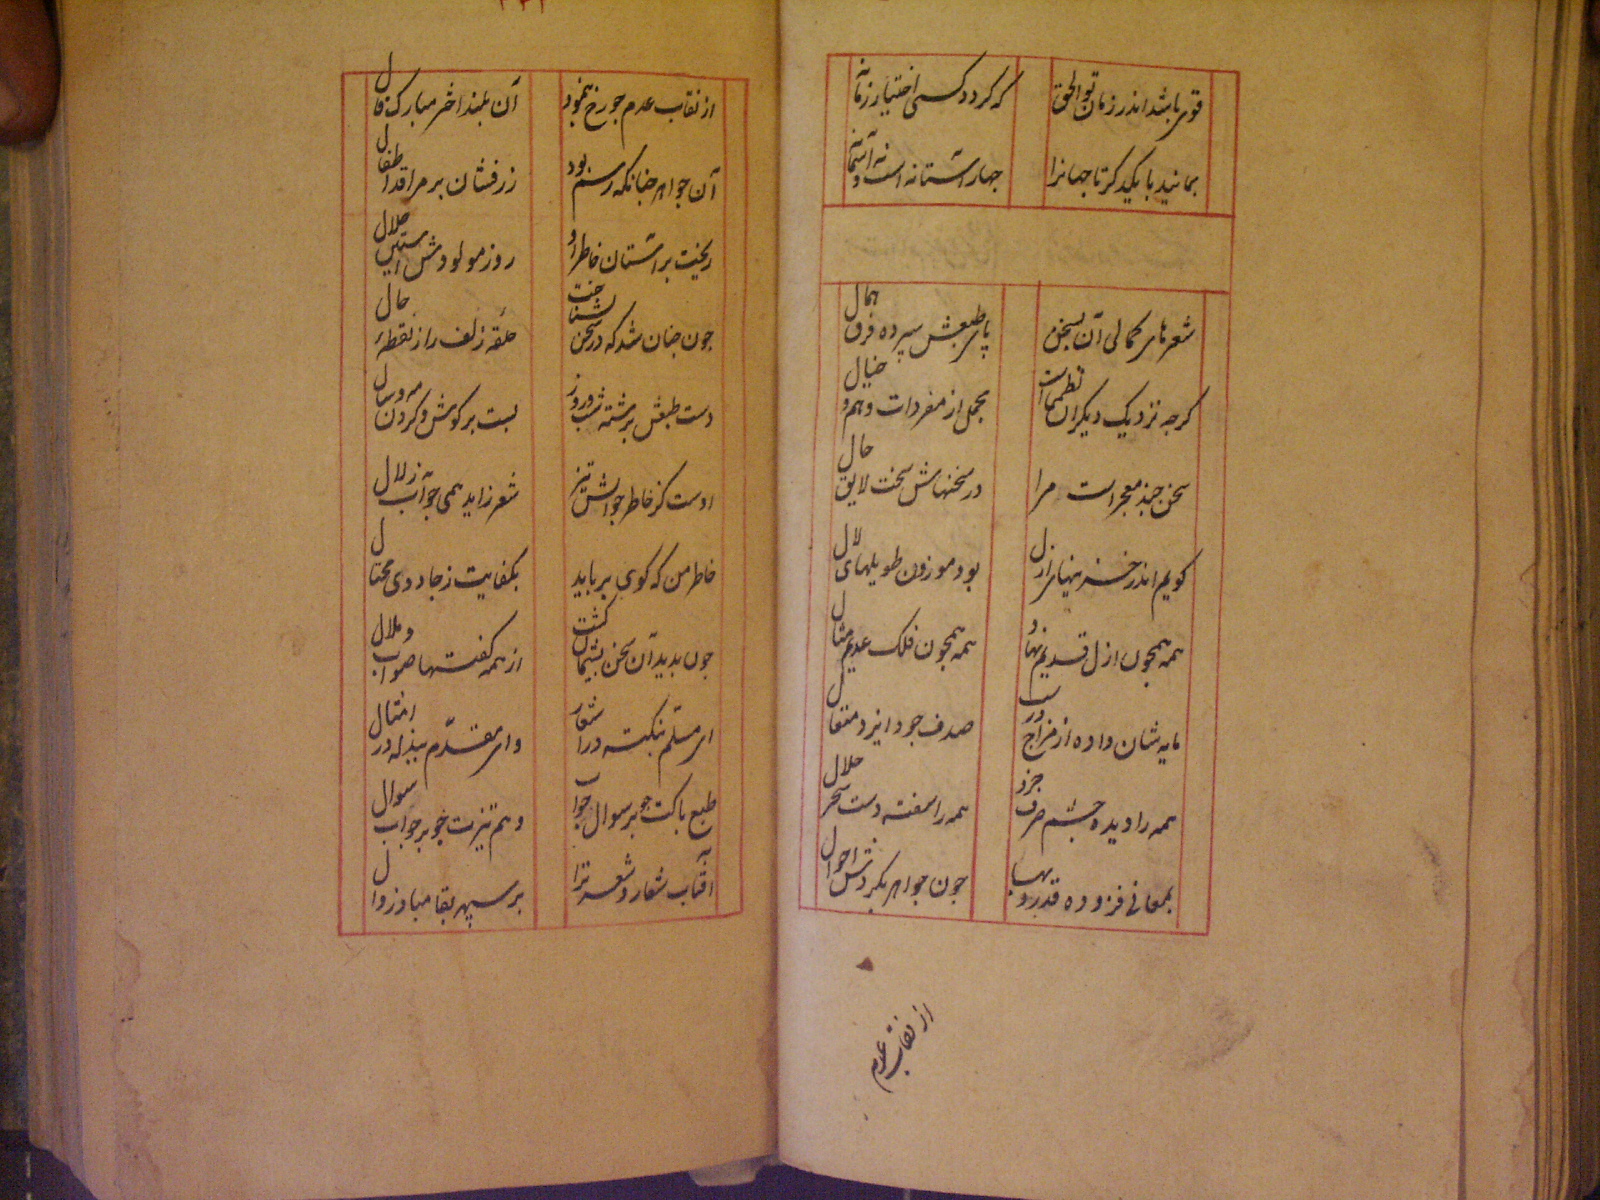 قوی باشد اندر زمان تو الحق که کردد کسی اختیار زمانه
بمانید با یکدکر تا جهانرا جهار آستانه است و نه آسمانه
شعرهای کمالی آن بسخن پای طبعش سپرده فرق همال
کرجه نزدیک دیکران نظمست مجمل از مفردات وهم و خیال
سخن جند معجزاست مرا در سخنهاش سخت لایق حال
کویم اندر خزینهای ازل بود موزون طویلهای لال
همه همجون ازل قدیم نهاد همه همجون فلک عدیم مثال
مایه شان داده از مزاج درست صدف جود ایزد متعال
همه را دیده جشم صرف خرد همه را سفته دست سحر حلال
بمعانی فزوده قدر و بها جون جواهر بکردش احوال
از نقاب عدم
از نقاب عدم جو رخ بنمود آن بلند اختر مبارک فال
آن جواهر جنانکه رسم بود زرفشان بر سر اطفال
ریخت بر آستان خاطر او روز مولودش آستین جلال
جون جنان شد که در سخن بشناخت حلقه زلف را ز نقطه خال
دست طبعش برشته شب و روز بست بر کوش و کردن مه و سال
اوست کز خاطر جو آتش تیز شعر زاید همی جو آب زلال
خاطر من که کوی برباید بکفایت ز جادوی محتال
جون بدید آن سخن پشیمان کشت از همه کفتها صواب و ملال
ای مسلم بنکته در اشعار وای مقدم ببذله در امثال
طبع باکت جو بر سوال جواب وهم تیزت جو بر جواب سوال
آفتاب شعار و شعر ترا بر سپهر بقا مباد زوال